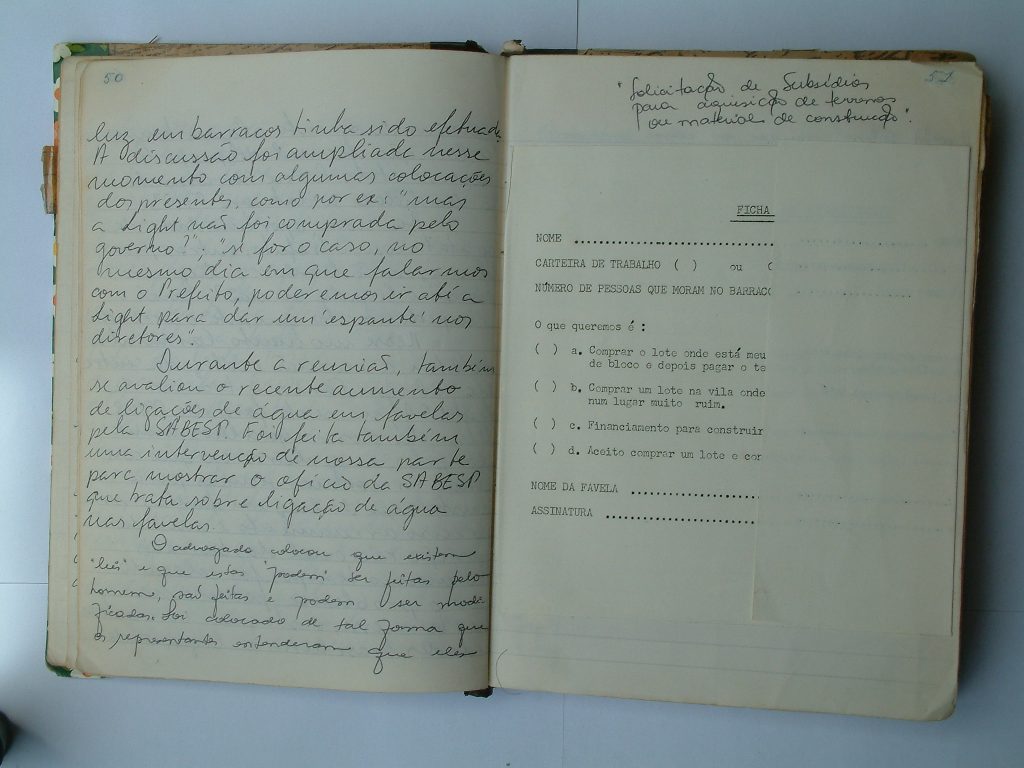 50
luz em barracos tinha sido efetuada.
A discussão foi ampliada nesse
momento com algumas colocações
dos presentes, como por ex: "mas
a Light não foi comprada pelo
governo?"; "se for o caso, no
mesmo dia em que falarmos
com o Prefeito, poderemos ir até a
Light para dar um 'espante' nos
diretores".
Durante a reunião, também
se avaliou o recente aumento
de ligações de água em favelas
pela SABESP. Foi feita também
uma intervenção de nossa parte
para mostrar o ofício da SABESP
que trata sobre ligação de água
nas favelas
O advogado colocou que existem
"leis" e que estas "podem" ser feitas pelo
homem, são feitas e podem ser modi
ficadas. Foi colocado de tal forma que
os representantes entenderam que eles
51
"Solicitação de Subsídios
para aquisição de terrenos
ou material de construção".
FICHA
NOME ................................
CARTEIRA DE TRABALHO ( ) ou (
NÚMERO DE PESSOAS QUE MORAM NO BARRACO
O que queremos é :
( ) a. Comprar o lote onde está meu
de bloco e depois pagar o te
( ) b. Comprar um lote na vila onde
num lugar muito ruim.
( ) c. Financiamento para construir
( ) d. Aceito comprar um lote e con
NOME DA FAVELA ....................
ASSINATURA ........................